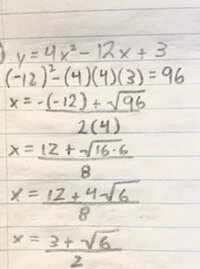 ) y = 4x² - 12x + 3
(-12)² - (4)(4)(3) = 96
x = -(-12) + √96
2(4)
x = 12 + √16·6
8
x = 12 + 4√6
8
x = 3 + √6
2